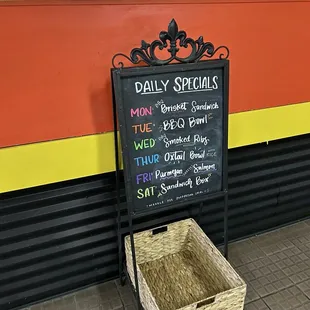 DAILY SPECIALS
MON: Brisket Sandwich
TUE: BBQ Bowl
WED: Smoked Ribs
THUR: Oxtail Bowl
FRI: Parmesan Salmon
SAT: Sandwich Box